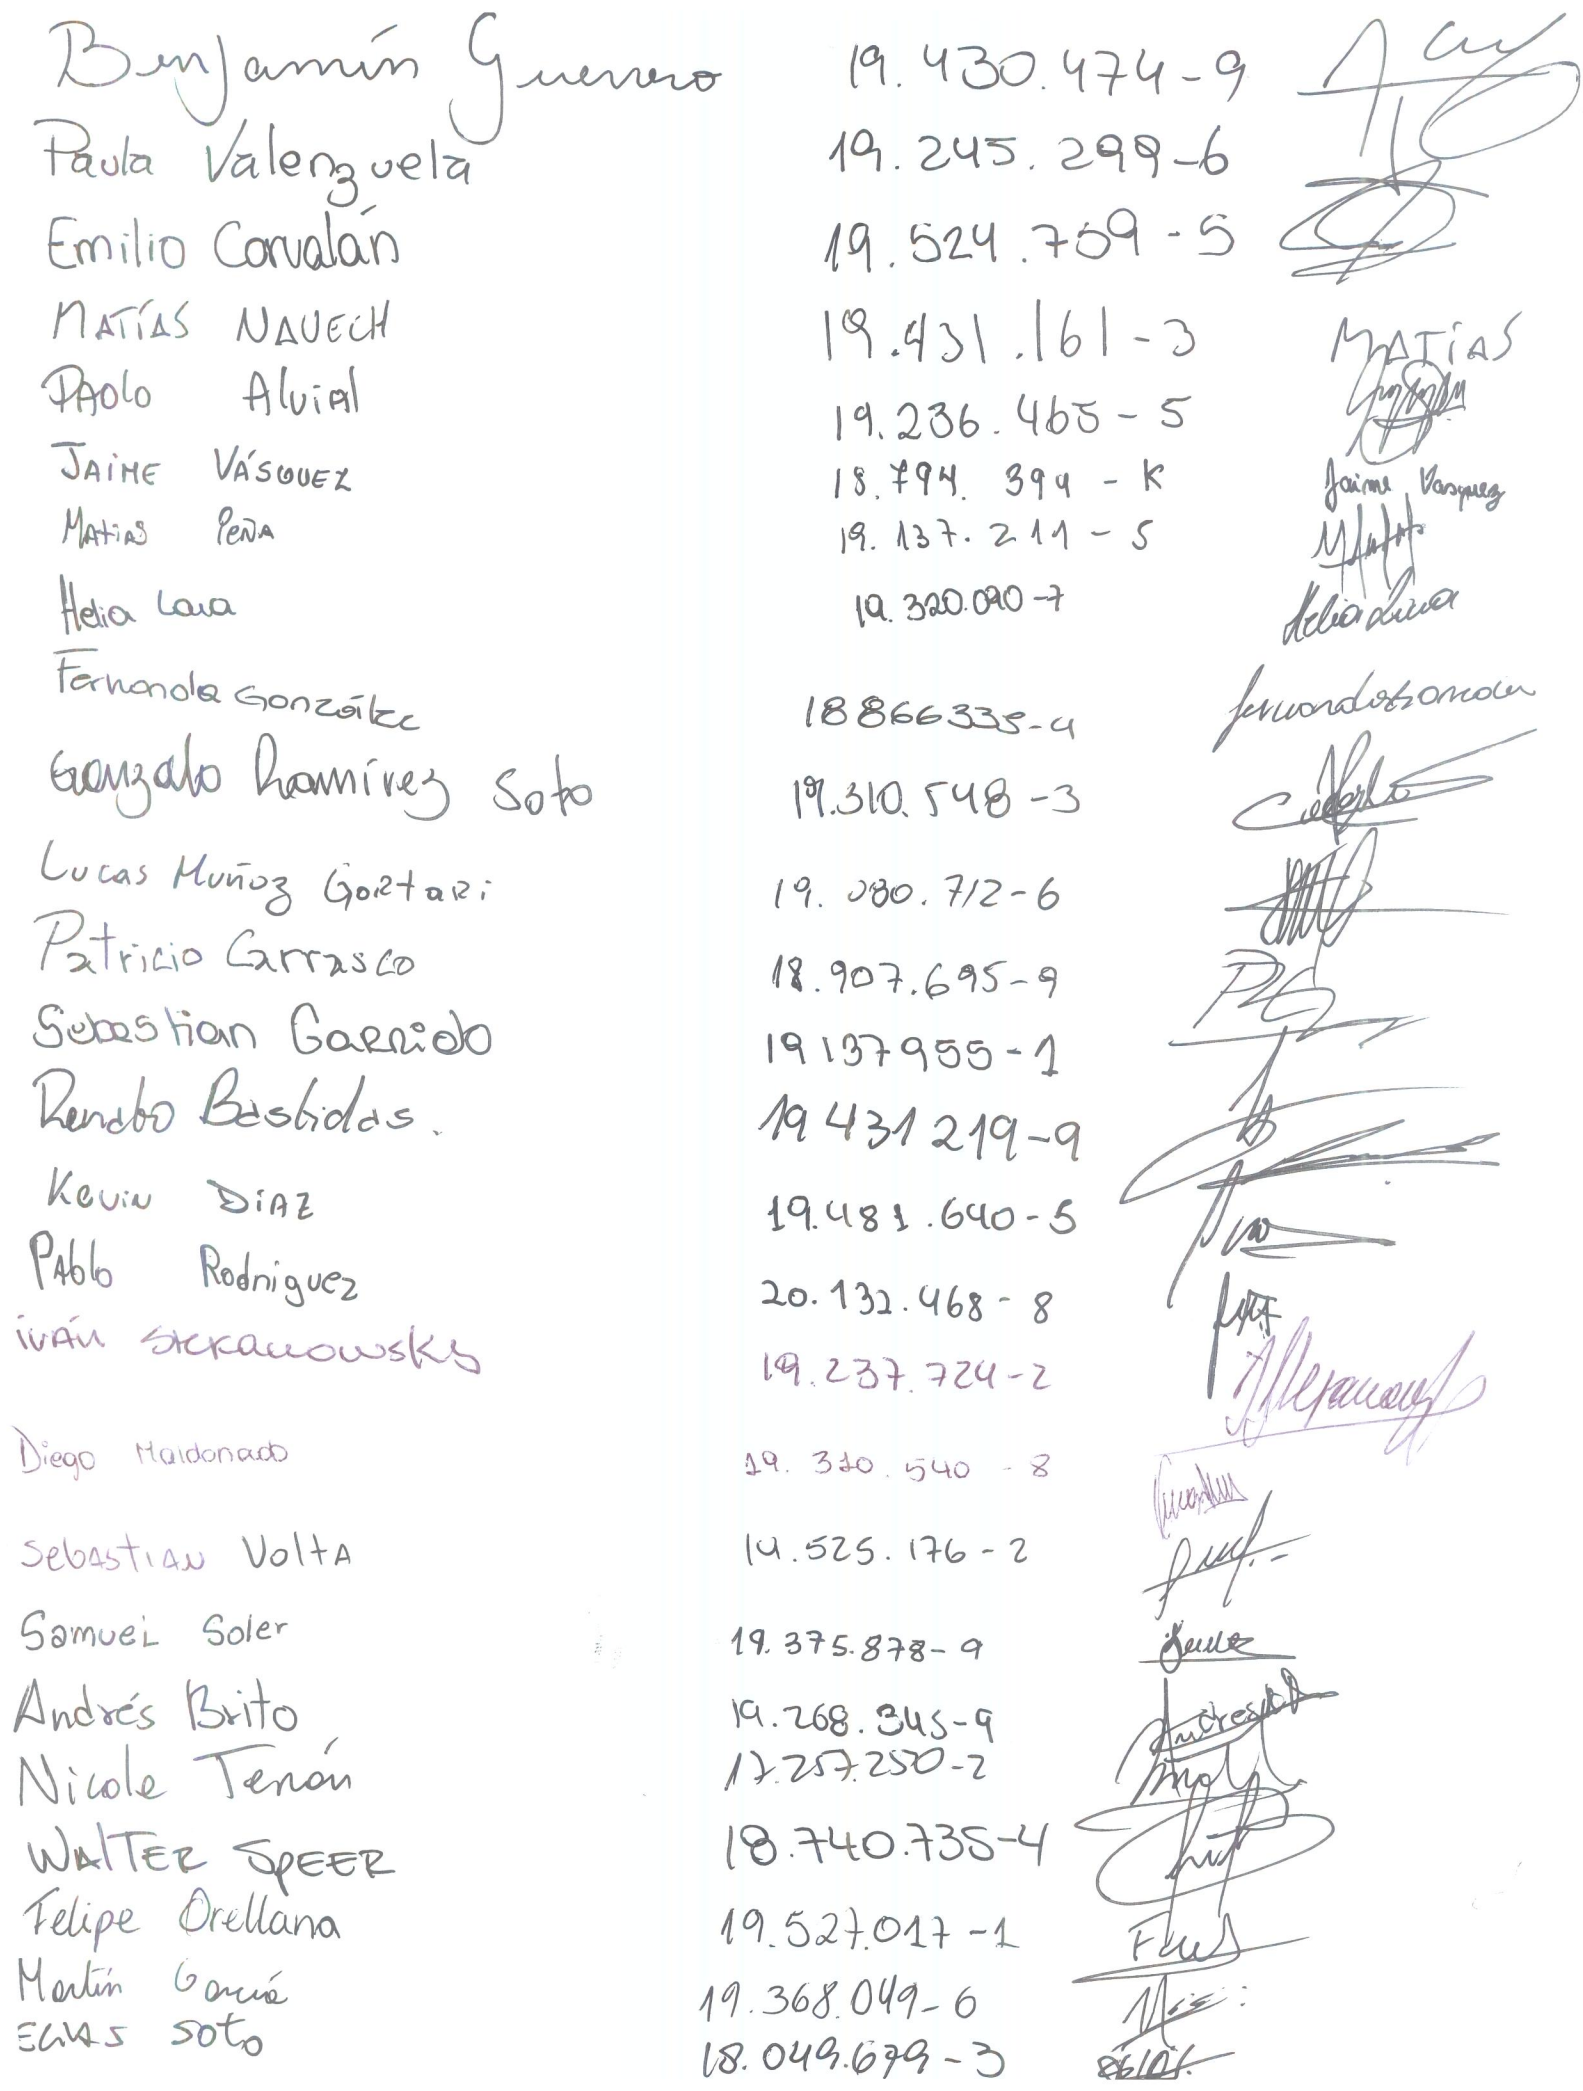 Benjamín Guerrero 19.430.474-9
Paula Valenzuela 19.245.299-6
Emilio Corvalán 19.524.759-5
MATÍAS NAUECH 19.431.161-3 MATÍAS
PAOLO Alvial 19.236.465-5
JAIME VÁSQUEZ 18.794.394-K Jaime Vasquez
Matias Peña 19.137.211-5
Helia Lara 19.320.090-7 Helia Lara
Fernanda González 18866335-4
Gonzalo Ramírez Soto 19.310.548-3
Lucas Muñoz Gortari 19.080.712-6
Patricio Carrasco 18.907.695-9
Sebastian Garrido 19137955-1
Renato Bastidas. 19431219-9
Kevin Diaz 19.481.640-5
Pablo Rodriguez 20.132.468-8
Iván 19.237.724-2
Diego Maldonado 19.310.540-8
Sebastian Volta 19.525.176-2
Samuel Soler 19.375.878-9
Andrés Brito 19.268.345-9
Nicole Tenón 17.257.250-2
WALTER SPEER 18.740.735-4
Felipe Orellana 19.527.017-1
Martín García 19.368.049-6
ELIAS SOTO 18.049.679-3